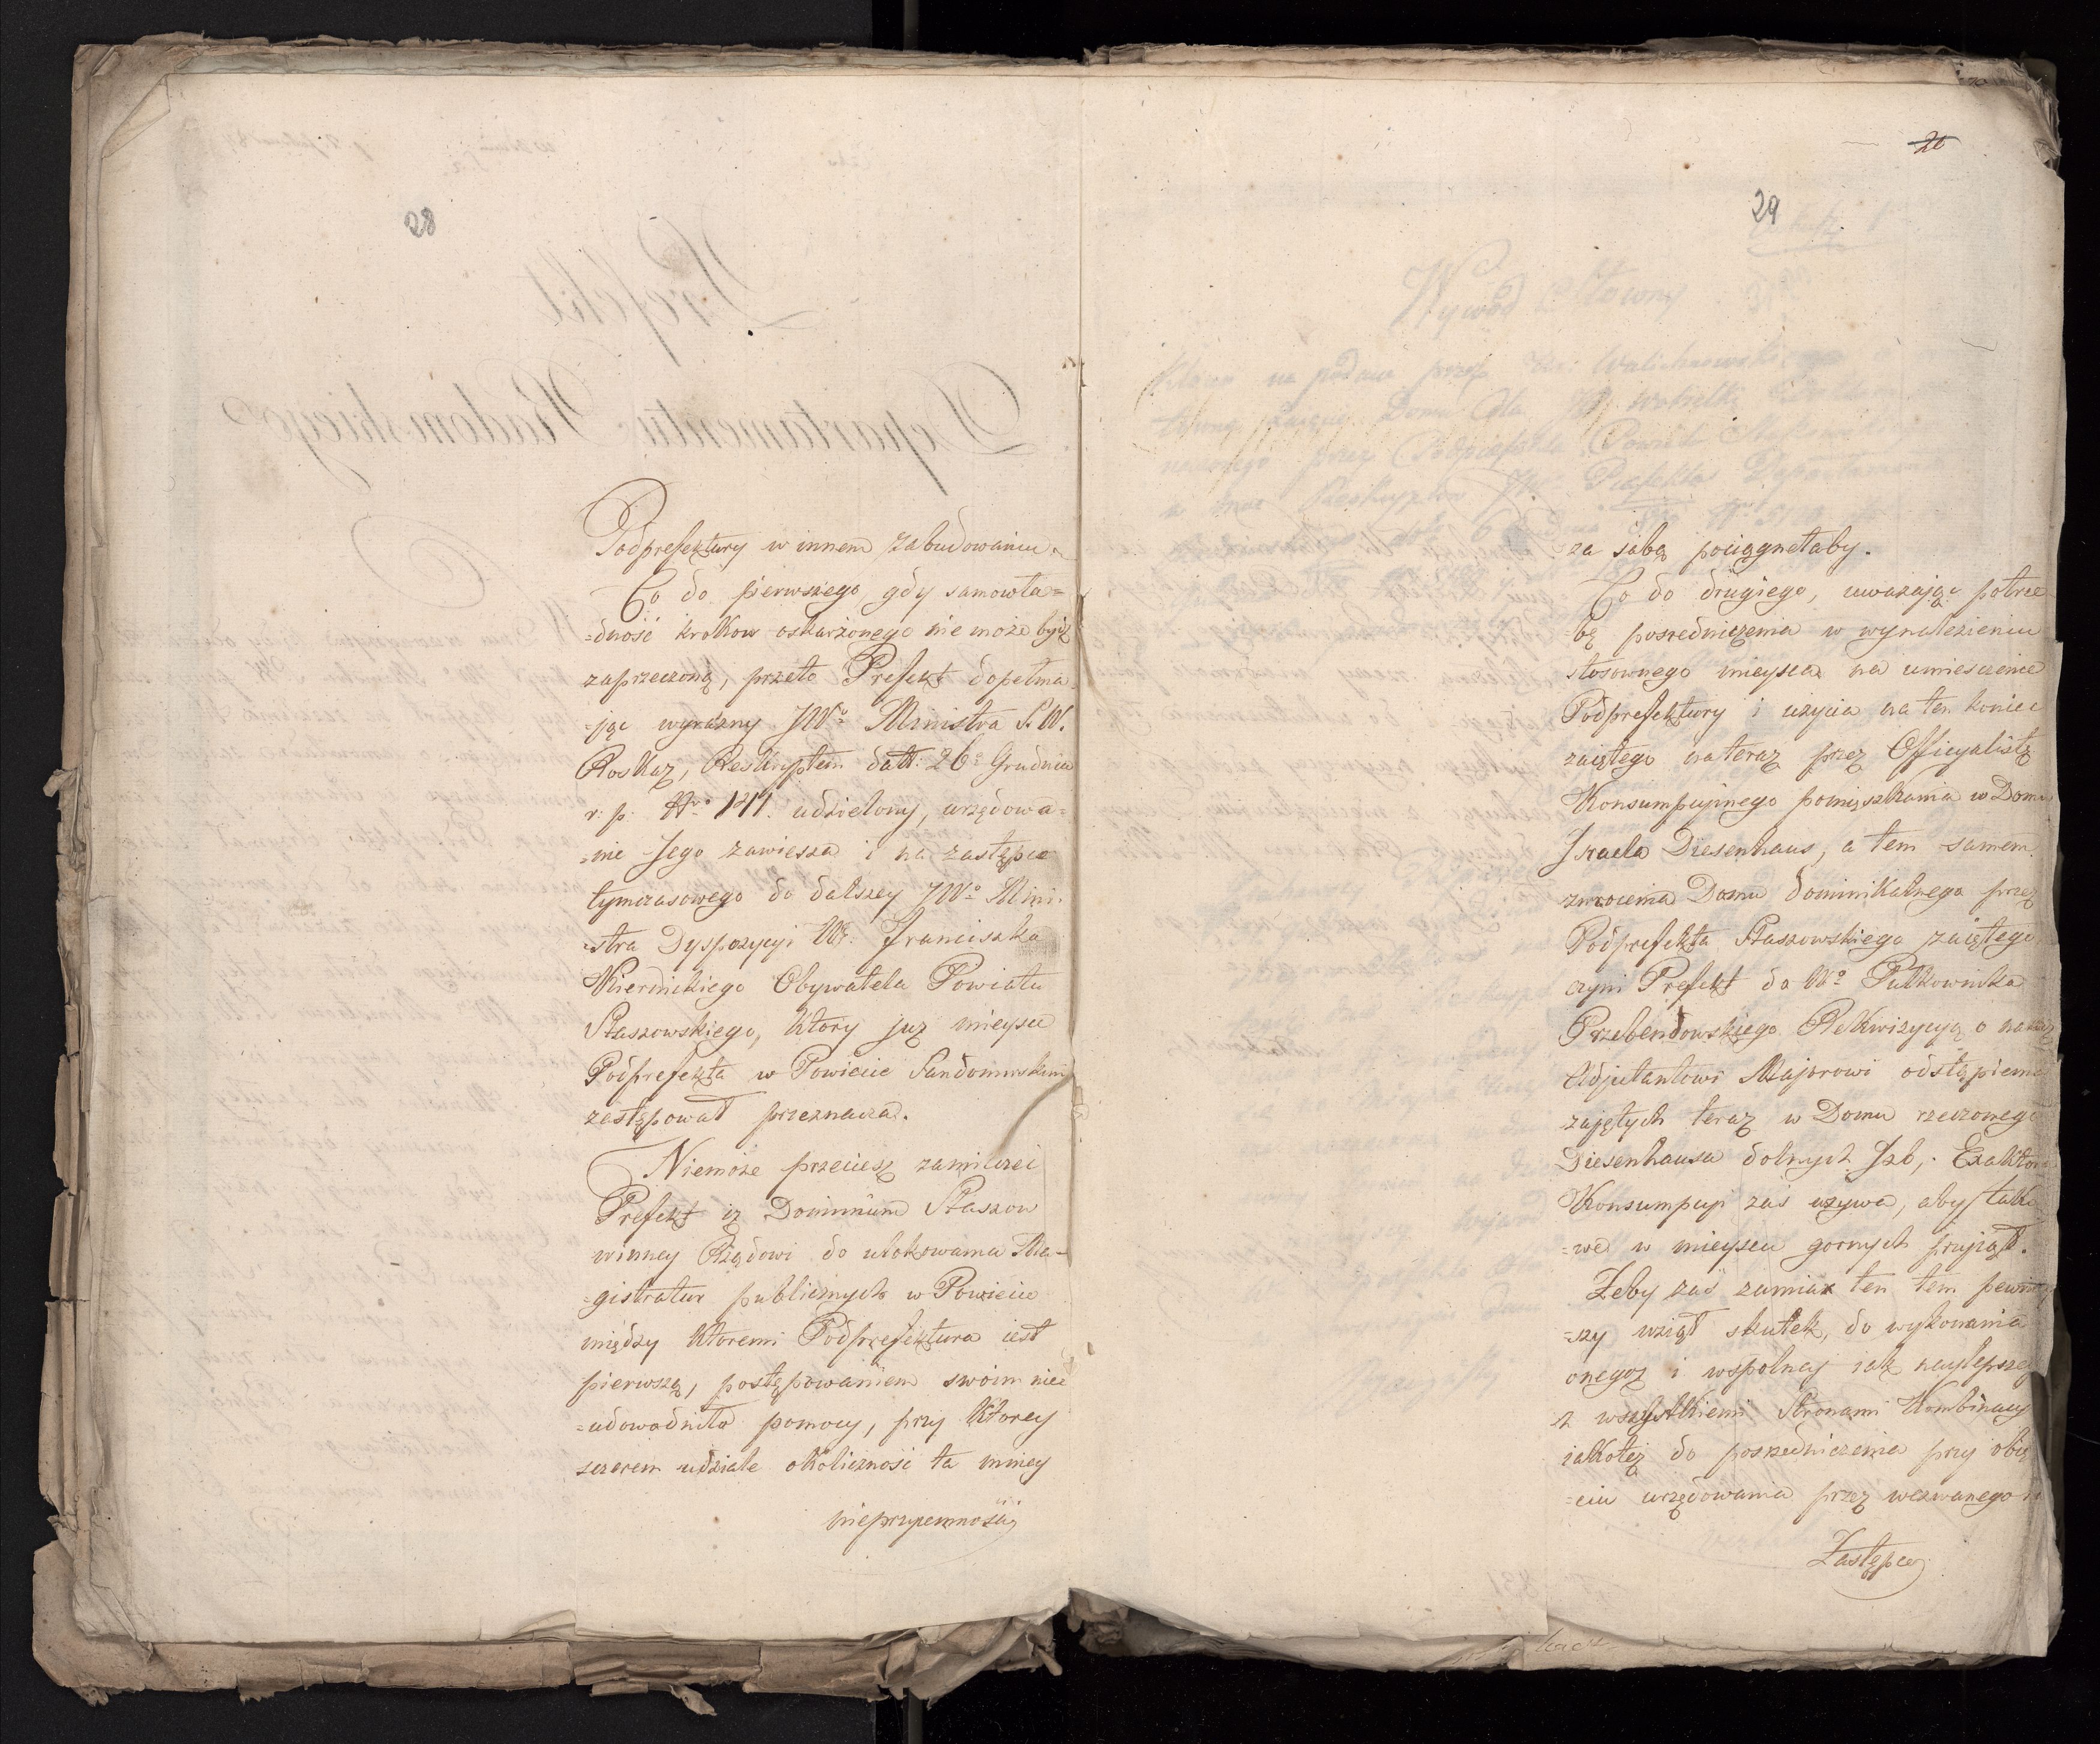 28
Podprefektury w innem zabudowaniu.
Co do pierwszego, gdy samowła=
=dność krokow oskarżonego nie może bydź
zaprzeczoną, przeto Prefekt dopełnia
=jąc wyrazny JWo Ministra S. W.
Roskaz, Reskryptem datt: 26o Grudnia
r: p: Nro 1411. udzielony, urzędowa=
=nie Jego zawiesza i na zastępce
tymczasowego do dalszey JWo Mini=
=stra Dyspozycyi W. Franciszka
Obywatela Powiatu
Staszowskiego, ktory juz mieysce
Podprefekta w Powiecie Sandomirskim
zastępował przeznacza.
Niemoże przeciesz zamilczeć
Prefekt iż Dominium Staszow
winney Rządowi do ulokowania Ma=
=gistratur publicznych w Powiecie
między ktoremi Podprefektura iest
pierwszą, postępowaniem swoim nie
=udowodniła pomocy, przy ktorey
szczerem udziale okoliczność ta mniey
nieprzyiemności
20
29
za sobą pociągnełaby.
Co do drugiego, uważając potrze
bę posredniczenia w wynalezieniu
stosownego mieysca na umiesczenie
Podprefektury i użycia na ten koniec
zaiętego na teraz przez Officyalistę
Konsumpcyinego pomięszkania w Domu
Izraela Diesenhaus, a tem samem
zwrocenia Domu dominikalnego przez
Podprefekta Staszowskiego zaiętego
czyni Prefekt do Wo Pułkownika
Przebendowskiego Rekwizycyą o nakaz
Adjutantowi Majorowi odstąpienia
zajętych teraz w Domu rzeczonego
Diesenhausa dolnych Izb, Exaktora
Konsumpcyi zaś używa, aby tako
=we w mieyscu gornych przyiął.
Żeby zaś zamiar ten tem pewniey
=szy wziął skutek, do wykonania
onegoż i wspolney iak naylepszey
z wszystkiemi Stronami Kombinacyi
iakoteż do posredniczenia przy obię
=ciu urzędowania przez wezwanego
Zastępcę